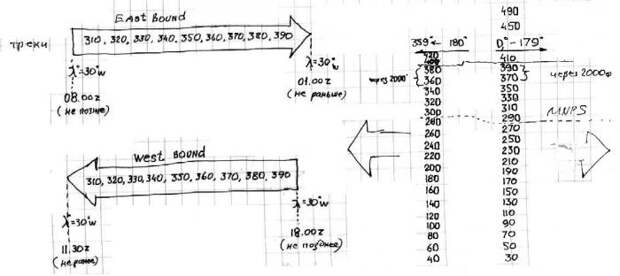 EAST BOUND
треки
310, 320, 330, 340, 350, 360, 370, 380, 390
λ=30°
08.00z
(не позже)
λ=30°w
01.00z
(не раньше)
WEST BOUND
310, 320, 330, 340, 350, 360, 370, 380, 390
λ=30°w
11.30z
(не ранее)
λ=30°w
18.00z
(не позднее)
359° ← 180°
420
400
380
360
340
320
300
280
260
240
220
200
180
160
140
120
100
80
60
40
через 2000'
490
450
0° - 179°
410
390
370
350
330
310
290
270
250
230
210
190
170
150
130
110
90
70
50
30
через 2000ф
MNPS